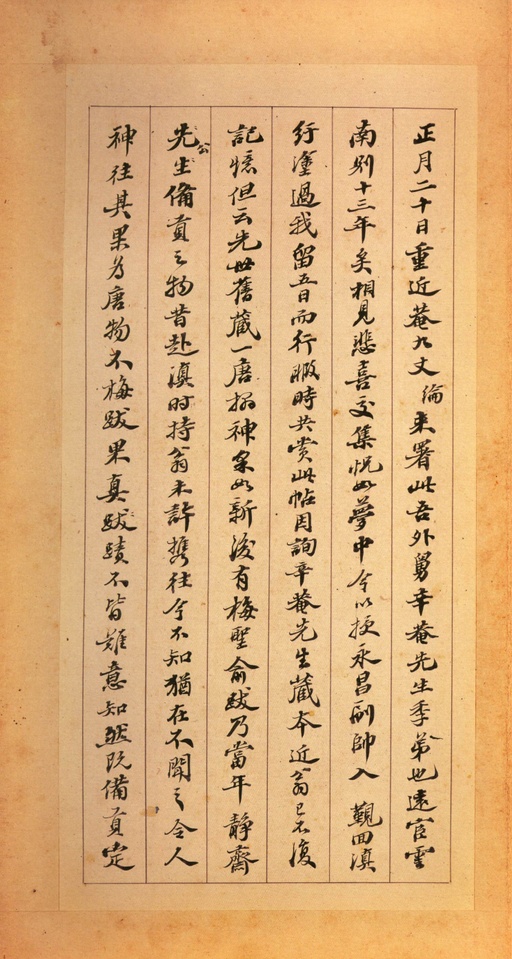 正月二十日重近菴九丈綸來署此吾外舅幸菴先生季弟也遠官雲
南別十三年矣相見悲喜交集怳如夢中今以授永昌副帥入 覲回滇
紆塗過我留五日而行暇時共賞此帖因詢幸菴先生藏本近翁已不復
記憶但云先世舊藏一唐搨神采如新後有梅聖俞跋乃當年靜齋
先生公備貢之物昔赴滇時持翁未許携往今不知猶在不聞之令人
神往其果爲唐物不梅跋果真跋蹟不皆難意知然既備貢定